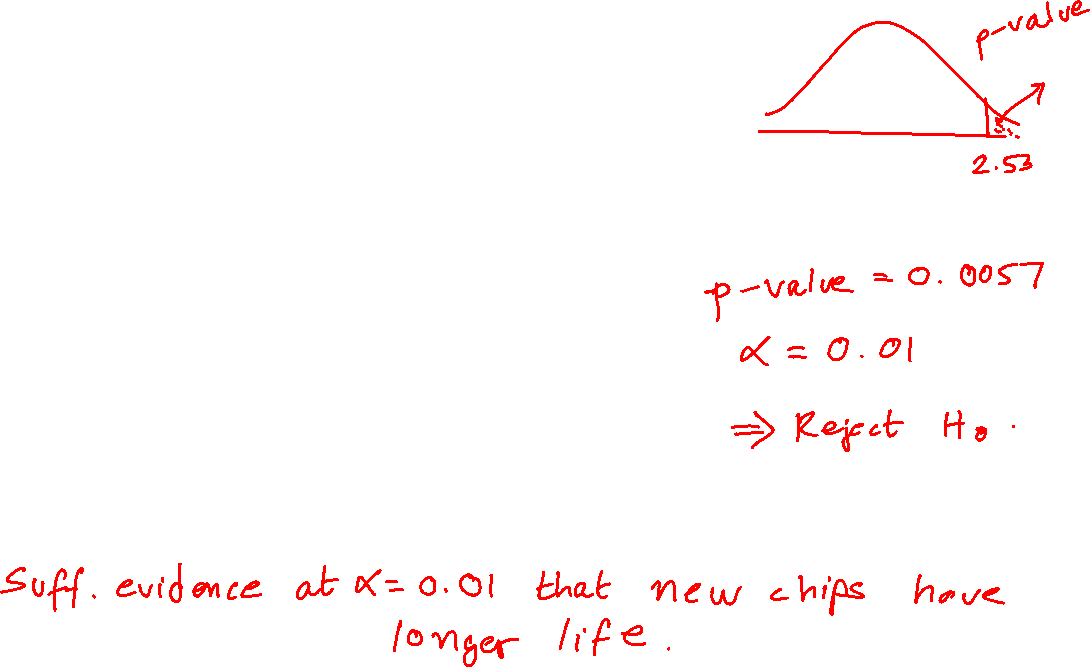 p-value
2.53
p-value = 0.0057
α = 0.01
⇒ Reject H₀.
Suff. evidence at α = 0.01 that new chips have
longer life.